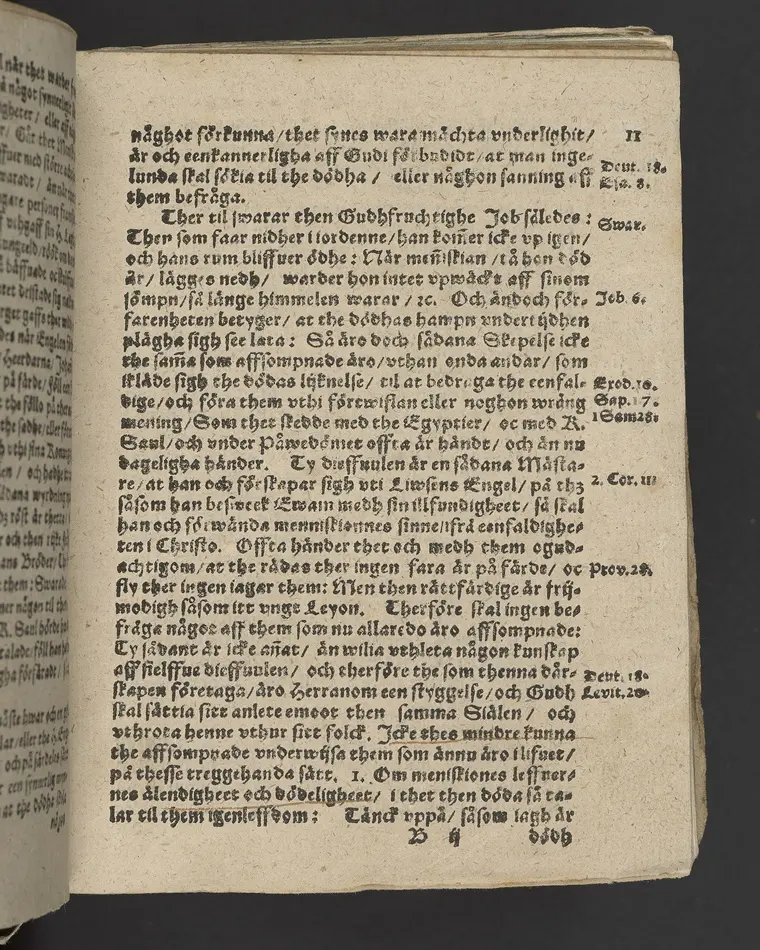 någhot förkunna/thet synes wara mächta vnderlighit/
11
är och eenkannerligha aff Gudi förbudidt/at man inge-
lunda skal sökia til the dödha/ eller någhon sanning aff
Deut. 18.
Esa. 8.
them befråga.
Ther til swarar then Gudhfruchtighe Job således:
Swar.
Then som faar nidher i iordenne/han kom̃er icke vp igen/
och hans rum bliffuer ödhe: När men̄iskian/tå hon död
är/lägges nedh/ warder hon intet vpwäckt aff sinom
sömpn/så länge himmelen warar/ꝛc. Och ändoch för-
Job. 6.
farenheten betyger/at the dödhas hampn vndertijdhen
plägha sigh see lata: Så äro doch sådana Skepelse icke
the sam̃a som affsompnade äro/vthan onda andar/som
ikläde sigh the dödas lijknelse/til at bedraga the eenfal-
Exod. 10.
dige/och föra them vthi förtwiflan eller noghon wrång
Sap. 17.
mening/Som thet skedde med the Egyptier/ oc med K.
1 Sam 28.
Saul/och vnder Påwedömet offta är händt/och än nu
dageligha händer. Ty dieffuulen är en sådana Mästa-
re/at han och förskapar sigh vti Liwsens Engel/på thz
2. Cor. 11
såsom han besweek Ewam medh sin illfundigheet/så skal
han och förwända menniskionnes sinne ifrå eenfaldighe-
ten i Christo. Offta händer thet och medh them ogud-
achtigom/at the rädas ther ingen fara är på färde/ oc
Prov. 28.
fly ther ingen iagar them: Men then rättfärdige är frij-
modigh såsom itt vngt Leyon. Therföre skal ingen be-
fråga något aff them som nu allaredo äro affsompnade:
Ty sådant är icke an̄at/än wilia vthleta någon kunskap
aff sielffue dieffuulen/ och therföre the som thenna dår-
Deut. 18.
skapen företaga/äro Herranom een styggelse/och Gudh
Levit. 20.
skal sättia sitt anlete emoot then samma Siälen/ och
vthrota henne vthur sitt folck. Icke thes mindre kunna
the affsompnade vnderwijsa them som ännu äro i lifuet/
på thesse treggehanda sätt. 1. Om meniskiones leffuer-
nes älendigheet och dödeligheet/ i thet then döda så ta-
lar til them igenleffdom: Tänck vppå/såsom iagh är
B ij
dödh